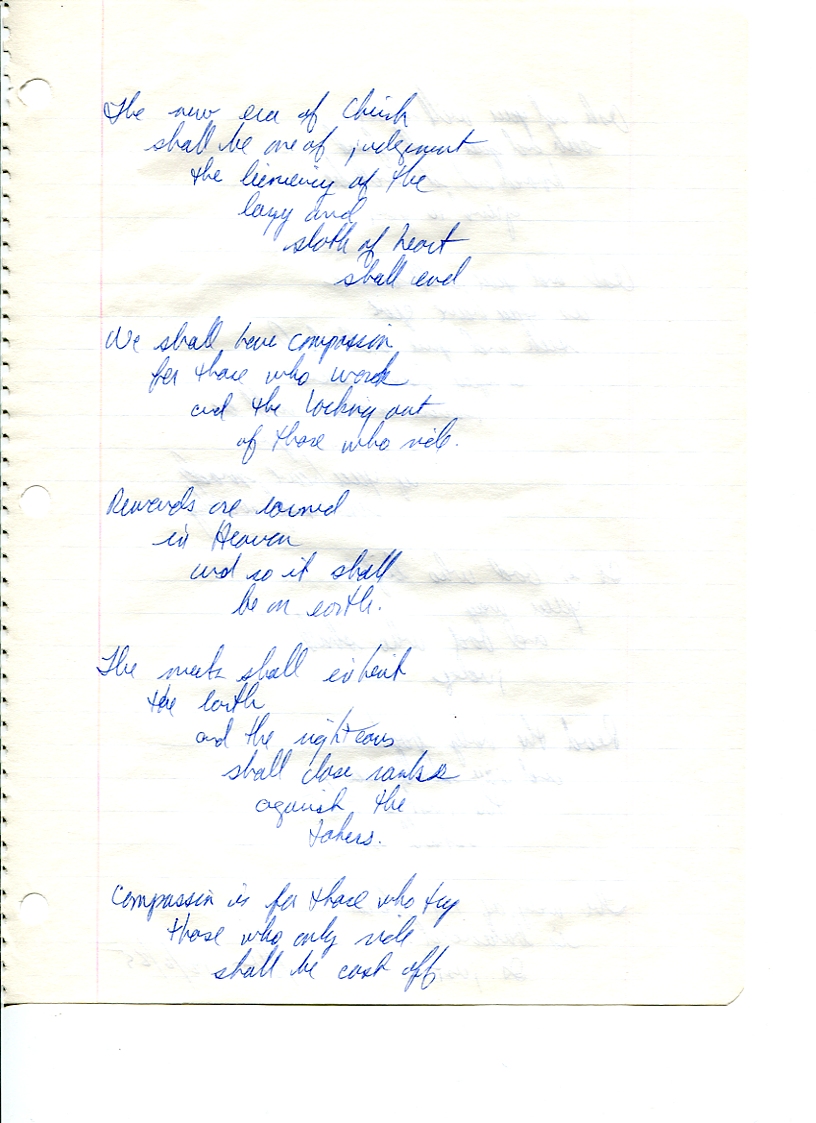 The new era of Church
shall be one of judgement
the lieniency of the
lazy and
sloth of heart
shall end
We shall have compassion
for those who work
and the locking out
of those who ride.
Rewards are earned
in Heaven
and so it shall
be on earth.
The meek shall inherit
the earth
and the righteous
shall close ranks
against the
takers.
Compassion is for those who try
those who only ride
shall be cast off